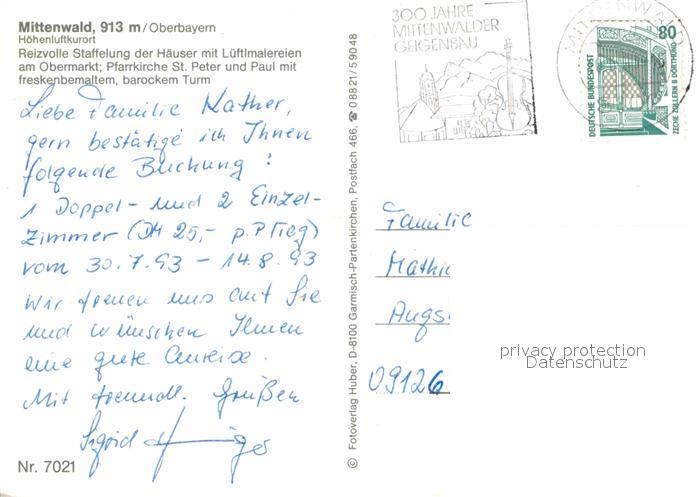 Mittenwald, 913 m/Oberbayern
Höhenluftkurort
Reizvolle Staffelung der Häuser mit Lüftlmalereien
am Obermarkt; Pfarrkirche St. Peter und Paul mit
freskenbemaltem, barockem Turm
Liebe Familie Kather,
gern bestätige ich Ihnen
folgende Buchung:
1 Doppel- und 2 Einzel-
zimmer (DM 25,- p.P Tag)
vom 30.7.93 - 14.8.93
Wir freuen uns auf Sie
und wünschen Ihnen
eine gute Anreise.
Mit freundl. Grüßen
Sigrid
Nr. 7021
© Fotoverlag Huber, D-8100 Garmisch-Partenkirchen, Postfach 466, ☎ 08821/59048
300 JAHRE
MITTENWALDER
GEIGENBAU
MITTENWALD
80
DEUTSCHE BUNDESPOST
ZECHE ZOLLERN II DORTMUND
Familie
Mathi
Augs
09126
privacy protection
Datenschutz